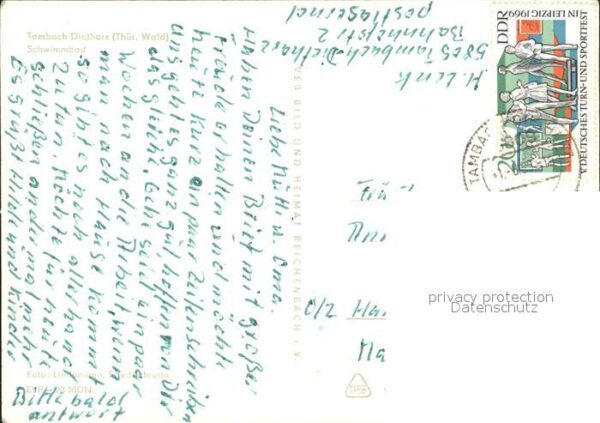 Tambach-Dietharz (Thür. Wald)
Schwimmbad
Liebe Mutti u. Oma.
Haben Deinen Brief mit großer
Freude erhalten und möchte
heute kurz ein paar Zeilen schreiben
uns geht es ganz gut, hoffen von Dir
das gleiche. Gehe seid ein paar
Wochen an die Arbeit, wenn
man nach Hause kommt
so gibt es noch allerhand
zu tun. Möchte für heute
schließen andermal mehr
Es grüßt Hilde und Kinder
Bitte bald
antwort
VEB BILD UND HEIMAT REICHENBACH i. V.
H. Lenk
5805 Tambach-Dietharz
Bahnhofstr 2
postlagernd
DDR
V. DEUTSCHES TURN- UND SPORTFEST
IN LEIPZIG 1969
20+5
TAMBAC
Frü
Ann
c/z Ha
Ma
privacy protection
Datenschutz